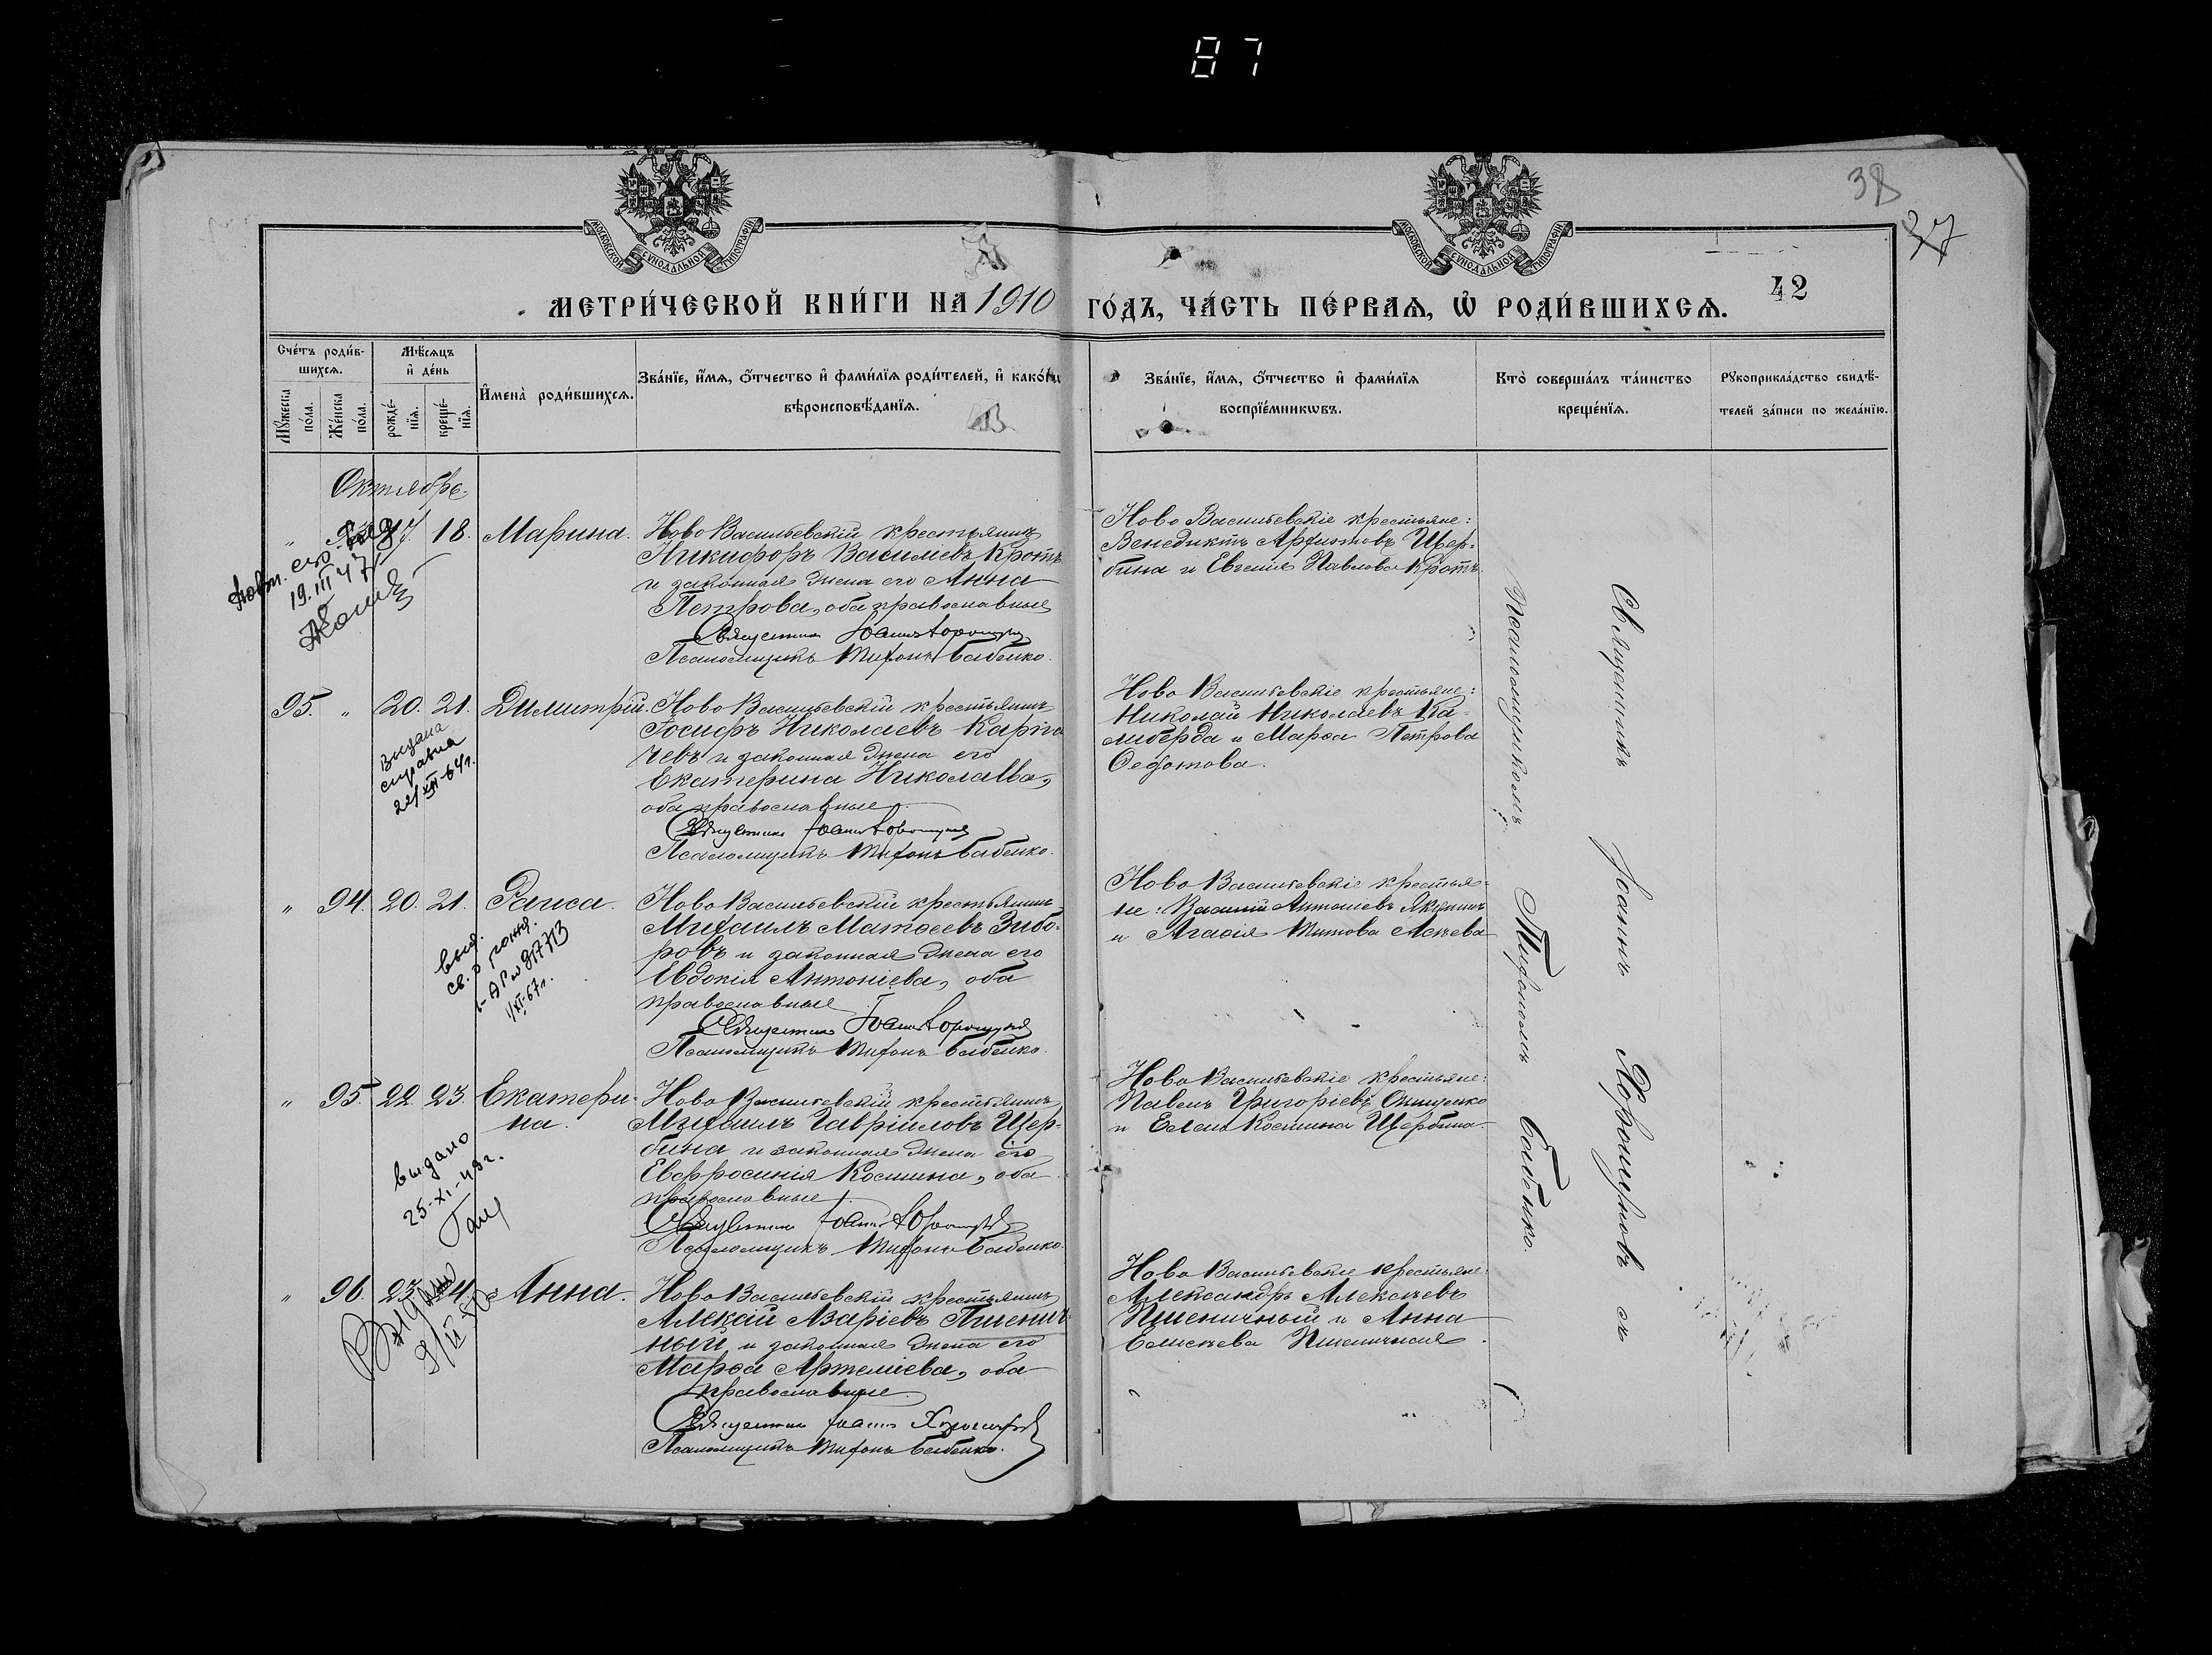 87
38
37
42
МОСКОВСКОЙ СѴНОДАЛЬНОЙ ТИПОГРАФІИ
МОСКОВСКОЙ СѴНОДАЛЬНОЙ ТИПОГРАФІИ
МЕТРИ́ЧЕСКОЙ КНИ́ГИ НА 1910 ГО́ДЪ, ЧА́СТЬ ПЕ́РВАѦ, Ѽ РОДИ́ВШИХСѦ.
Сче́тъ роди́в-
шихсѧ.
Мꙋ́жеска по́ла.
Же́нска по́ла.
Мѣ́сѧцъ
и҆ де́нь
рожде́-
нїѧ.
креще́-
нїѧ.
И҆мена̀ роди́вшихсѧ.
Зва́нїе, и҆́мѧ, ѻ҆́тчество и҆ фами́лїѧ роди́телей, и҆ како́гѡ
вѣроисповѣ́данїѧ.
Зва́нїе, и҆́мѧ, ѻ҆́тчество и҆ фами́лїѧ
воспрїе́мникѡвъ.
Кто̀ соверша́лъ та́инство
креще́нїѧ.
Рꙋкоприкла́дство свидѣ́-
телей за́писи по жела́нїю.
Октябрь
" 17. 18. Марина.
Повт.
19.III 47
Ново Васильевскій крестьянинъ
Никифоръ Васильевъ Кротъ
и законная жена его Анна
Петрова, оба православные
Священникъ Іоаннъ Хорошуновъ
Псаломщикъ Тифонъ Бабенко.
Ново Васильевскіе крестьяне:
Венедиктъ Архиповъ Щер-
бина и Евгенія Павлова Кротъ.
95. " 20. 21. Димитрій.
Видана
справка
22/XII-64г.
Ново Васильевскій крестьянинъ
Іосифъ Николаевъ Карпа
чевъ и законная жена его
Екатерина Николаева,
оба православные
Священникъ Іоаннъ Хорошуновъ
Псаломщикъ Тифонъ Бабенко.
Ново Васильевскіе крестьяне:
Николай Николаевъ Ка-
либерда и Марѳа Петрова
Ѳедотова.
" 94. 20. 21. Раиса.
выд.
св. о рожд.
1/XI-67г.
Ново Васильевскій крестьянинъ
Михаилъ Матѳеевъ Зибо-
ровъ и законная жена его
Евдокія Антоніева, оба
православные
Священникъ Іоаннъ Хорошуновъ
Псаломщикъ Тифонъ Бабенко.
Ново Васильевскіе крестья-
не: Василій Антоніевъ Якунинъ
и Агаѳія Титова
" 95. 22. 23. Екатери-
на.
выдано
25-XI-49г.
Ново Васильевскій крестьянинъ
Михаилъ Гавріиловъ Щер-
бина и законная жена его
Евфросинія Космина, оба
православные
Священникъ Іоаннъ Хорошуновъ
Псаломщикъ Тифонъ Бабенко.
Ново Васильевскіе крестьяне:
Павелъ Григоріевъ Онищенко
и Елена Космина Щербина.
" 96. 23. 24. Анна.
Ново Васильевскій крестьянинъ
Алексій Азаріевъ Пшенич-
ный и законная жена его
Марѳа Артеміева, оба
православные
Священникъ Іоаннъ Хорошуновъ
Псаломщикъ Тифонъ Бабенко.
Ново Васильевскіе крестьяне:
Александръ Алексѣевъ
Пшеничный и Анна
Елисѣева Пшеничная.
Священникъ Іоаннъ Хорошуновъ съ
псаломщикомъ Тифономъ Бабенко.